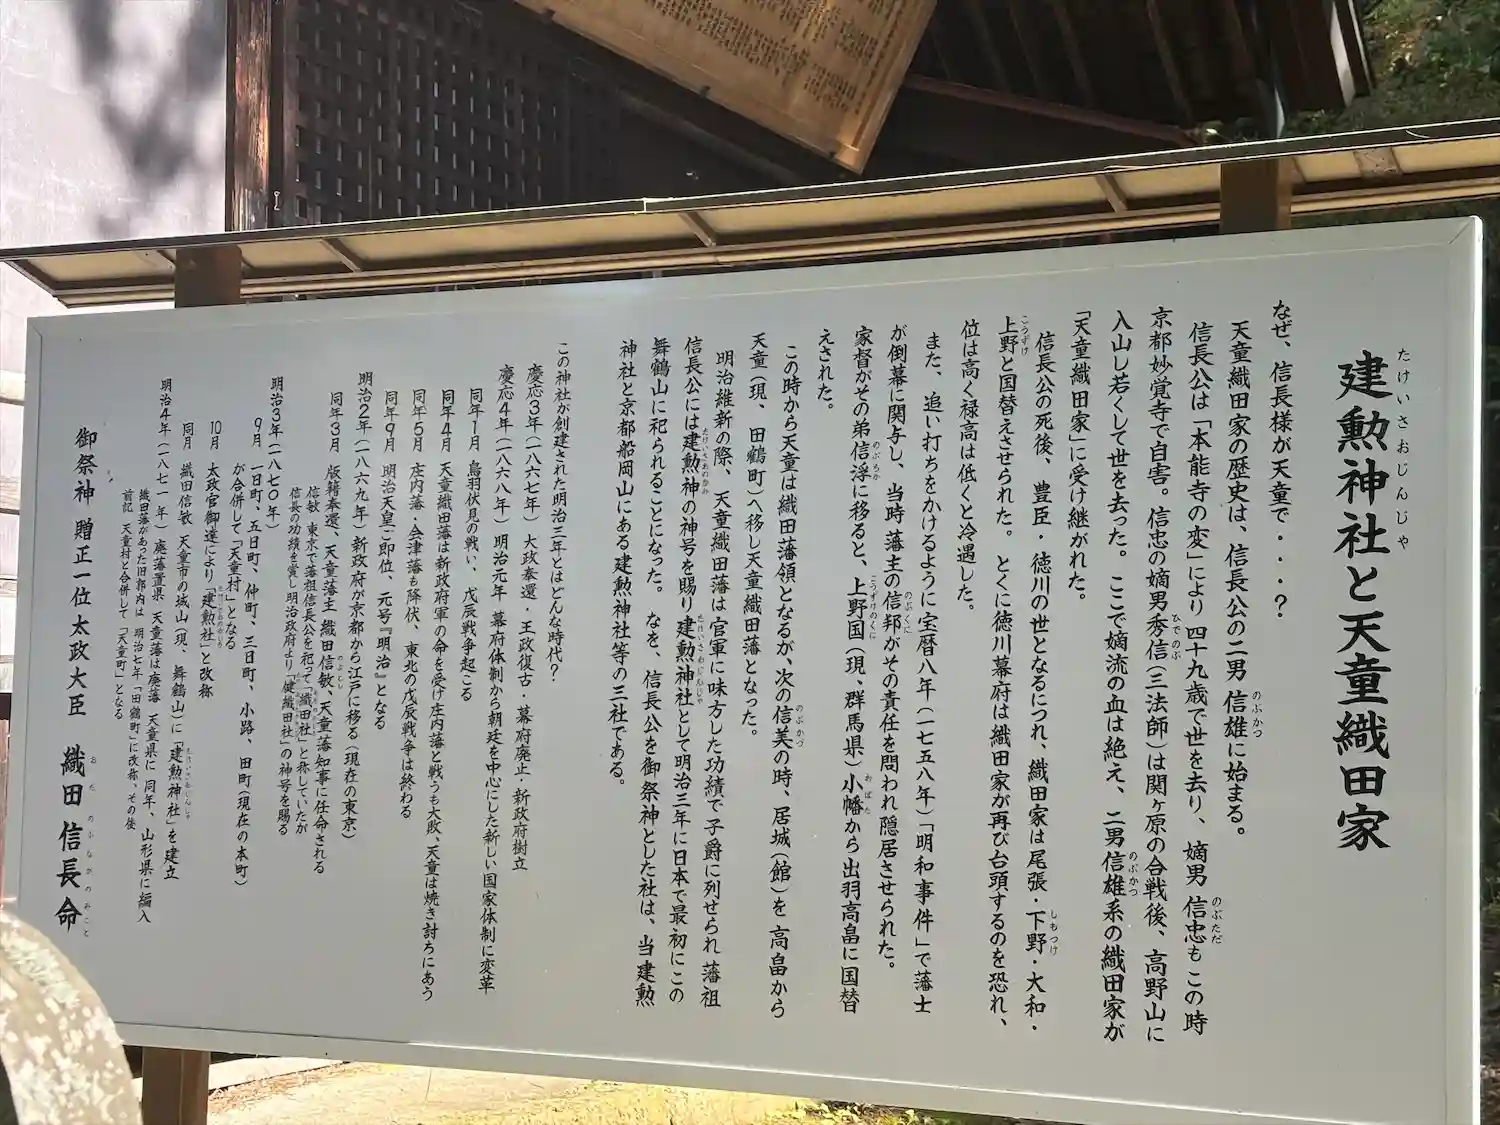 建勲神社と天童織田家
たけいさおじんじゃ
なぜ、信長様が天童で・・・？
天童織田家の歴史は、信長公の二男 信雄に始まる。
のぶかつ
信長公は「本能寺の変」により 四十九歳で世を去り、嫡男 信忠も この時
のぶただ
京都妙覚寺で自害。信忠の嫡男秀信（三法師）は関ヶ原の合戦後、高野山に
ひでのぶ
入山し若くして世を去った。ここで嫡流の血は絶え、二男信雄系の織田家が
のぶかつ
「天童織田家」に受け継がれた。
信長公の死後、豊臣・徳川の世となるにつれ、織田家は尾張・下野・大和・
しもつけ
上野と国替えさせられた。とくに徳川幕府は織田家が再び台頭するのを恐れ、
こうずけ
位は高く禄高は低くと冷遇した。
また、追い打ちをかけるように宝暦八年（一七五八年）「明和事件」で藩士
が倒幕に関与し、当時藩主の信邦がその責任を問われ隠居させられた。
のぶくに
家督がその弟信浮に移ると、上野国（現、群馬県）小幡から出羽高畠に国替
のぶちか
こうずけのくに
おばた
えさせられた。
この時から天童は織田藩領となるが、次の信美の時、居城（館）を高畠から
のぶかづ
天童（現、田鶴町）へ移し天童織田藩となった。
明治維新の際、天童織田藩は官軍に味方した功績で子爵に列せられ 藩祖
信長公には建勲神の神号を賜り建勲神社として明治三年に日本で最初にこの
たけいさおのかみ
たけいさおじんじゃ
舞鶴山に祀られることになった。なを、信長公を御祭神とした社は、当建勲
神社と京都船岡山にある建勲神社等の三社である。
この神社が創建された明治三年とはどんな時代？
慶応３年（一八六七年）大政奉還・王政復古・幕府廃止・新政府樹立
慶応４年（一八六八年）明治元年 幕府体制から朝廷を中心にした新しい国家体制に変革
同年１月 鳥羽伏見の戦い、戊辰戦争起こる
同年４月 天童織田藩は新政府軍の命を受け庄内藩と戦うも大敗、天童は焼き討ちにあう
同年５月 庄内藩・会津藩も降伏、東北の戊辰戦争は終わる
同年９月 明治天皇ご即位、元号『明治』となる
明治２年（一八六九年）新政府が京都から江戸に移る（現在の東京）
同年３月 版籍奉還、天童藩主 織田信敏、天童藩知事に任命される
のぶとし
信敏 東京で藩祖信長公を祀って「織田社」と称していたが
信長の功績を賞し明治政府より「健織田社」の神号を賜る
明治３年（一八七〇年）
９月 一日町、五日町、仲町、三日町、小路、田町（現在の本町）
が合併して「天童村」となる
１０月 太政官御達により「建勲社」と改称
同月 織田信敏 天童市の城山（現、舞鶴山）に「建勲神社」を建立
たけいさおじんじゃ
明治４年（一八七一年）廃藩置県 天童藩は廃藩 天童県に 同年、山形県に編入
織田藩があった旧郭内は 明治七年「田鶴町」に改称、その後
前記 天童村と合併して「天童町」となる
御祭神 贈正一位太政大臣 織田信長命
おだ のぶながのみこと